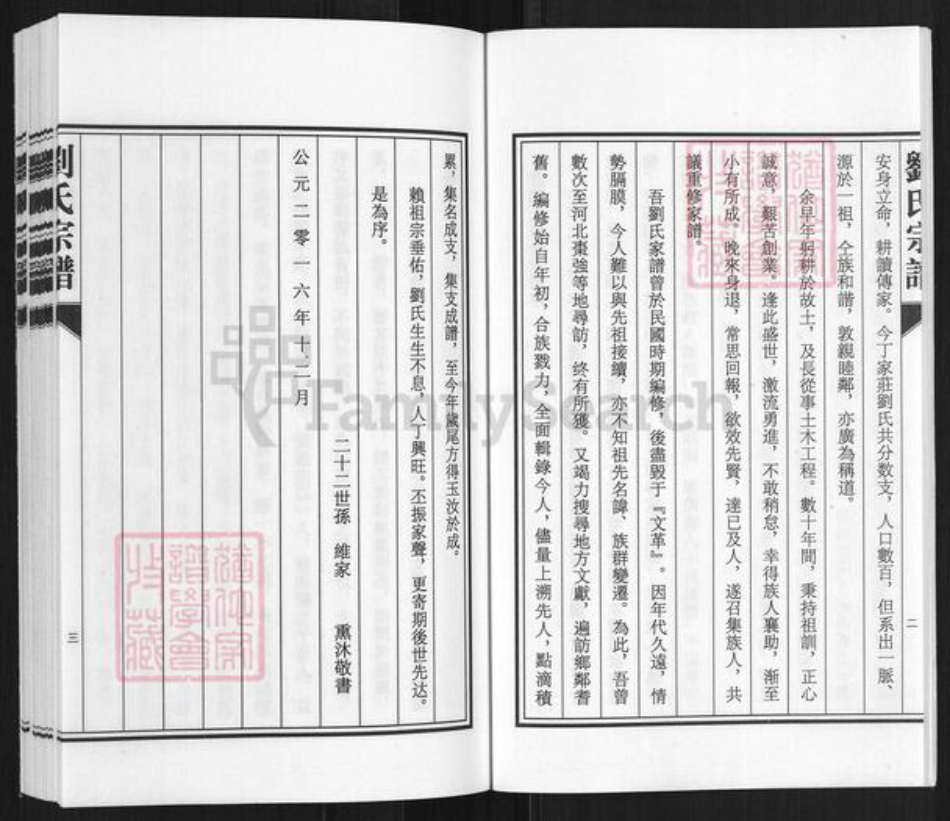 劉氏宗譜
二
安身立命，耕讀傳家。今丁家莊劉氏共分数支，人口數百，但系出一脈、
源於一祖，仝族和諧，敦親睦鄰，亦廣為稱道。
余早年躬耕於故土，及長從事土木工程。數十年間，秉持祖訓，正心
誠意，艱苦創業。逢此盛世，激流勇進，不敢稍怠，幸得族人襄助，漸至
小有所成。晚來身退，常思回報，欲效先賢，達已及人，遂召集族人，共
議重修家譜。
吾劉氏家譜曾於民國時期編修，後盡毀于『文革』。因年代久遠，情
勢膈膜，今人難以與先祖接續，亦不知祖先名諱、族群變遷。為此，吾曾
數次至河北棗強等地尋訪，終有所獲。又竭力搜尋地方文獻，遍訪鄉鄰耆
舊。編修始自年初，合族戮力，全面輯錄今人，儘量上溯先人，點滴積
累，集名成支，集支成譜，至今年歲尾方得玉汝於成。
賴祖宗垂佑，劉氏生生不息，人丁興旺。丕振家聲，更寄期後世先达。
是為序。
二十二世孫 維家 熏沐敬書
公元二零一六年十二月
劉氏宗譜
三
FamilySearch